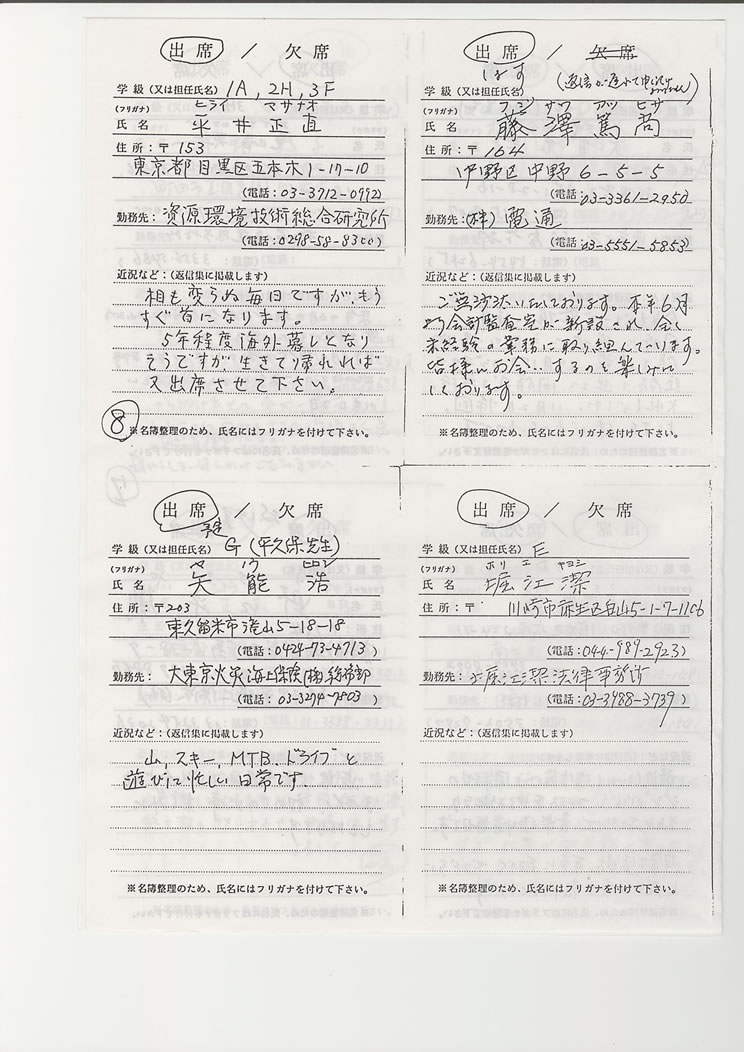 出席 / 欠席
学級（又は担任氏名） 1A, 2H, 3F
（フリガナ） ヒライ マサナオ
氏名 平井正直
住所：〒153
東京都目黒区五本木1-17-10
（電話：03-3712-0992）
勤務先：資源環境技術総合研究所
（電話：0298-58-8300）
近況など：（返信集に掲載します）
相も変らぬ毎日ですが、もう
すぐ首になります。
5年程度海外暮しとなり
そうですが、生きて帰れれば
又出席させて下さい。
8
※名簿整理のため、氏名にはフリガナを付けて下さい。
出席 / 欠席
（返信が遅れて申し訳ありません）
学級（又は担任氏名）
（フリガナ） フジ サワ アツ ヒサ
氏名 藤澤篤尚
住所：〒164
中野区中野6-5-5
（電話：03-3361-2950）
勤務先：（株）電通
（電話：03-5551-5853）
近況など：（返信集に掲載します）
ご無沙汰いたしております。本年6月
より会計監査室が新設され、全く
未経験の業務に取り組んでいます。
皆様にお会いするのを楽しみに
しております。
※名簿整理のため、氏名にはフリガナを付けて下さい。
出席 / 欠席
予定
学級（又は担任氏名） G（平久保先生）
（フリガナ） ヤ ノウ ヒロシ
氏名 矢能浩
住所：〒203
東久留米市滝山5-18-18
（電話：0424-73-4713）
勤務先：大東京火災海上保険（株）総務部
（電話：03-3274-7803）
近況など：（返信集に掲載します）
山、スキー、MTB、ドライブと
遊びに忙しい日常です。
※名簿整理のため、氏名にはフリガナを付けて下さい。
出席 / 欠席
学級（又は担任氏名） E
（フリガナ） ホリ エ キヨシ
氏名 堀江潔
住所：〒 川崎市麻生区白山5-1-7-1106
（電話：044-989-2923）
勤務先：堀江潔法律事務所
（電話：03-3988-3739）
近況など：（返信集に掲載します）
※名簿整理のため、氏名にはフリガナを付けて下さい。